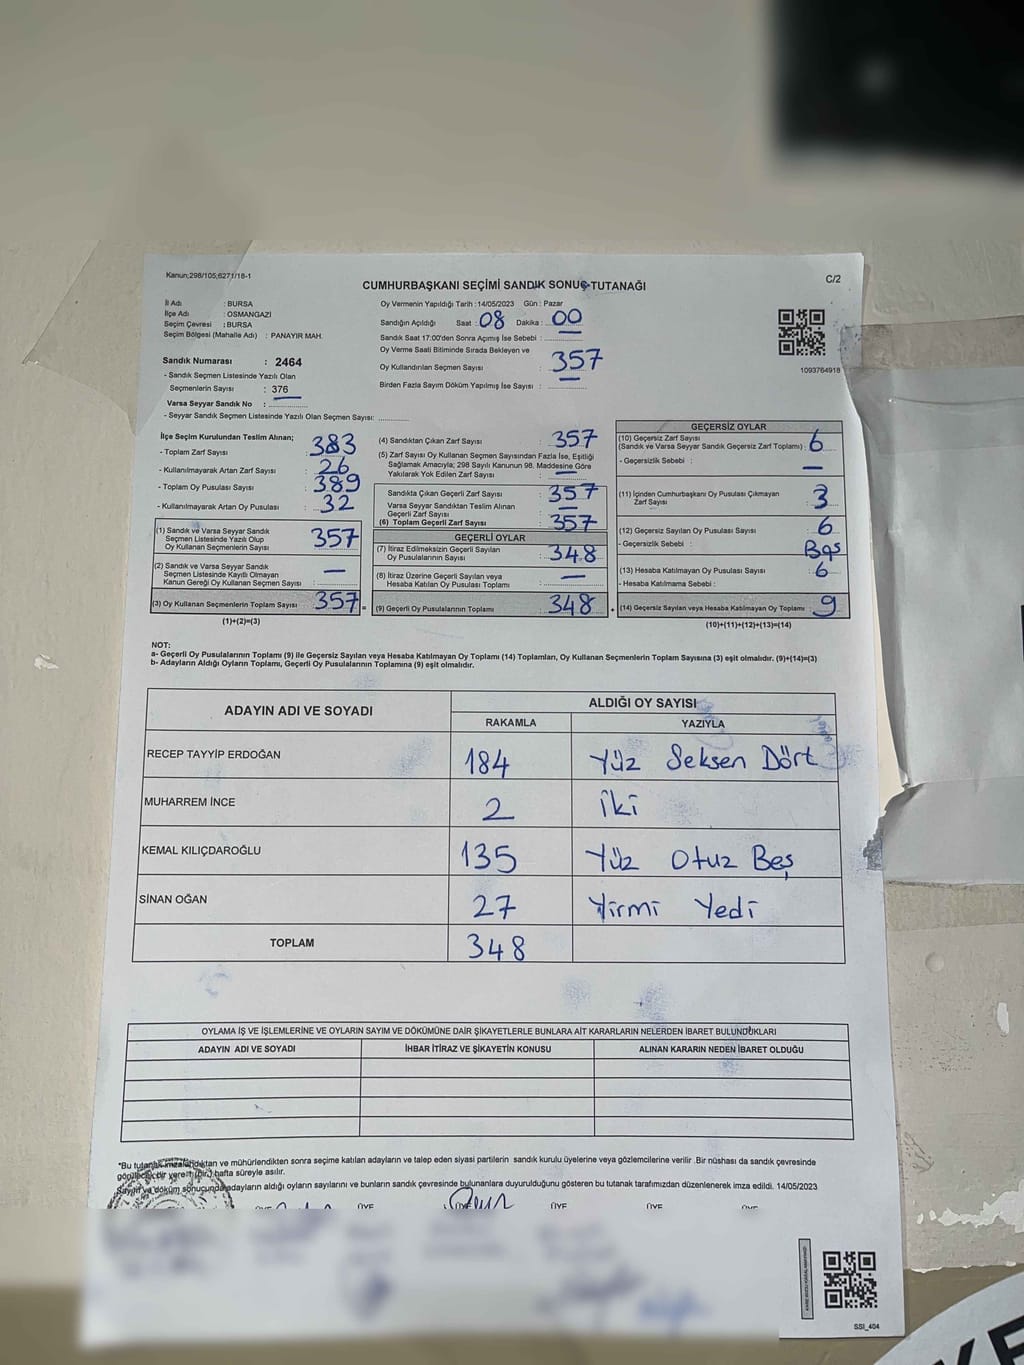 Kanun;298/105,6271/18-1
C/2
CUMHURBAŞKANI SEÇİMİ SANDIK SONUÇ TUTANAĞI
İl Adı : BURSA
İlçe Adı : OSMANGAZİ
Seçim Çevresi : BURSA
Seçim Bölgesi (Mahalle Adı) : PANAYIR MAH.
Sandık Numarası : 2464
- Sandık Seçmen Listesinde Yazılı Olan
Seçmenlerin Sayısı : 376
Varsa Seyyar Sandık No :
- Seyyar Sandık Seçmen Listesinde Yazılı Olan Seçmen Sayısı:
Oy Vermenin Yapıldığı Tarih : 14/05/2023 Gün : Pazar
Sandığın Açıldığı Saat : 08 Dakika : 00
Sandık Saat 17:00'den Sonra Açımış İse Sebebi :
Oy Verme Saati Bitiminde Sırada Bekleyen ve
Oy Kullandırılan Seçmen Sayısı : 357
Birden Fazla Sayım Döküm Yapılmış İse Sayısı :
1093764918
İlçe Seçim Kurulundan Teslim Alınan;
- Toplam Zarf Sayısı : 383
- Kullanılmayarak Artan Zarf Sayısı : 26
- Toplam Oy Pusulası Sayısı : 389
- Kullanılmayarak Artan Oy Pusulası : 32
(1) Sandık ve Varsa Seyyar Sandık
Seçmen Listesinde Yazılı Olup
Oy Kullanan Seçmenlerin Sayısı : 357
(2) Sandık ve Varsa Seyyar Sandık
Seçmen Listesinde Kayıtlı Olmayan
Kanun Gereği Oy Kullanan Seçmen Sayısı : —
(3) Oy Kullanan Seçmenlerin Toplam Sayısı : 357 =
(1)+(2)=(3)
(4) Sandıktan Çıkan Zarf Sayısı : 357
(5) Zarf Sayısı Oy Kullanan Seçmen Sayısından Fazla İse, Eşitliği
Sağlamak Amacıyla; 298 Sayılı Kanunun 98. Maddesine Göre
Yakılarak Yok Edilen Zarf Sayısı : —
Sandıkta Çıkan Geçerli Zarf Sayısı : 357
Varsa Seyyar Sandıktan Teslim Alınan
Geçerli Zarf Sayısı : —
(6) Toplam Geçerli Zarf Sayısı : 357
GEÇERLİ OYLAR
(7) İtiraz Edilmeksizin Geçerli Sayılan
Oy Pusulalarının Sayısı : 348
(8) İtiraz Üzerine Geçerli Sayılan veya
Hesaba Katılan Oy Pusulası Toplamı : —
(9) Geçerli Oy Pusulalarının Toplamı : 348 +
GEÇERSİZ OYLAR
(10) Geçersiz Zarf Sayısı
(Sandık ve Varsa Seyyar Sandık Geçersiz Zarf Toplamı) : 6
- Geçersizlik Sebebi : —
(11) İçinden Cumhurbaşkanı Oy Pusulası Çıkmayan
Zarf Sayısı : 3
(12) Geçersiz Sayılan Oy Pusulası Sayısı : 6
- Geçersizlik Sebebi : Boş
(13) Hesaba Katılmayan Oy Pusulası Sayısı : 6
- Hesaba Katılmama Sebebi :
(14) Geçersiz Sayılan veya Hesaba Katılmayan Oy Toplamı : 9
(10)+(11)+(12)+(13)=(14)
NOT:
a- Geçerli Oy Pusulalarının Toplamı (9) ile Geçersiz Sayılan veya Hesaba Katılmayan Oy Toplamı (14) Toplamları, Oy Kullanan Seçmenlerin Toplam Sayısına (3) eşit olmalıdır. (9)+(14)=(3)
b- Adayların Aldığı Oyların Toplamı, Geçerli Oy Pusulalarının Toplamına (9) eşit olmalıdır.
ADAYIN ADI VE SOYADI
ALDIĞI OY SAYISI
RAKAMLA YAZIYLA
RECEP TAYYİP ERDOĞAN 184 Yüz Seksen Dört
MUHARREM İNCE 2 İki
KEMAL KILIÇDAROĞLU 135 Yüz Otuz Beş
SİNAN OĞAN 27 Yirmi Yedi
TOPLAM 348
OYLAMA İŞ VE İŞLEMLERİNE VE OYLARIN SAYIM VE DÖKÜMÜNE DAİR ŞİKAYETLERLE BUNLARA AİT KARARLARIN NELERDEN İBARET BULUNDUKLARI
ADAYIN ADI VE SOYADI İHBAR İTİRAZ VE ŞİKAYETİN KONUSU ALINAN KARARIN NEDEN İBARET OLDUĞU
*Bu tutanak imzalandıktan ve mühürlendikten sonra seçime katılan adayların ve talep eden siyasi partilerin sandık kurulu üyelerine veya gözlemcilerine verilir .Bir nüshası da sandık çevresinde
görülecek bir yere 1 (bir) hafta süreyle asılır.
Sayım ve döküm sonucunda adayların aldığı oyların sayılarını ve bunların sandık çevresinde bulunanlara duyurulduğunu gösteren bu tutanak tarafımızdan düzenlenerek imza edildi. 14/05/2023
ÜYE ÜYE ÜYE ÜYE ÜYE ÜYE
SSI_404
KE